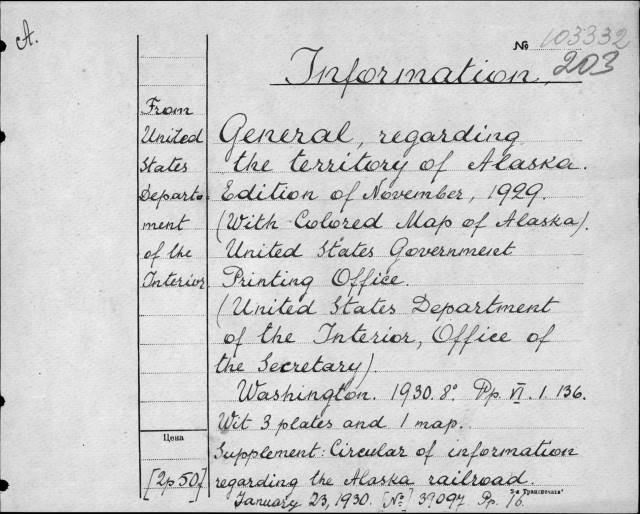 A.
№ 103332
203
Information,
From
United
States
Departe-
ment
of the
Interior
General, regarding
the territory of Alaska.
Edition of November, 1929.
(With Colored Map of Alaska).
United States Government
Printing Office.
(United States Department
of the Interior, Office of
the Secretary).
Washington. 1930. 8°. Pp. VI. 1. 136.
Wit 3 plates and 1 map.
Цена
[2р50]
Supplement: Circular of information
regarding the Alaska railroad.
January 23, 1930. [№] 39097. Pp. 16.